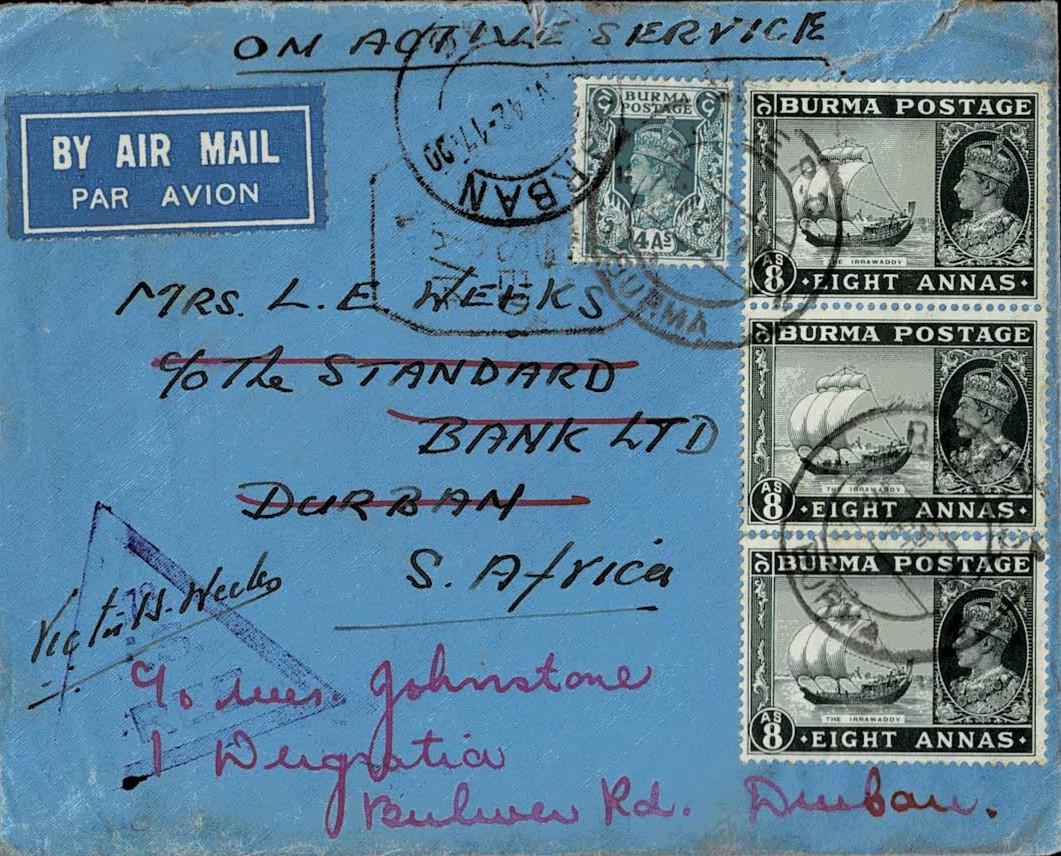 ON ACTIVE SERVICE
BY AIR MAIL
PAR AVION
VI 42-17.30
DURBAN
BURMA
POSTAGE
4 AS
BURMA
BURMA POSTAGE
THE IRRAWADDY
8 AS
·EIGHT ANNAS·
BURMA POSTAGE
THE IRRAWADDY
8 AS
·EIGHT ANNAS·
BURMA
BURMA POSTAGE
THE IRRAWADDY
8 AS
·EIGHT ANNAS·
MRS. L. E. WEEKS
c/o The STANDARD
BANK LTD
DURBAN
S. Africa
Victor H. Weeks
c/o Mrs. Johnstone
1 Deugratia
Bulwer Rd. Durban.